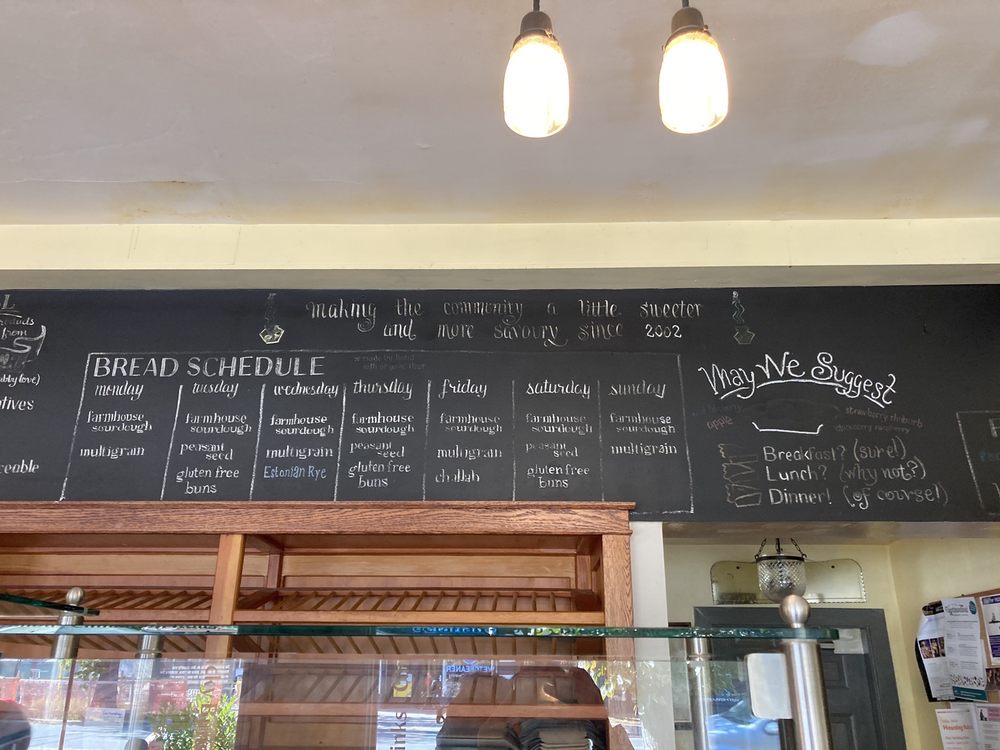 making the community a little sweeter
and more savoury since 2002
from
atives
ceable
BREAD SCHEDULE
monday
farmhouse
sourdough
multigrain
tuesday
farmhouse
sourdough
peasant
seed
gluten free
buns
wednesday
farmhouse
sourdough
multigrain
Estonian Rye
thursday
farmhouse
sourdough
peasant
seed
gluten free
buns
friday
farmhouse
sourdough
multigrain
challah
saturday
farmhouse
sourdough
peasant
seed
gluten free
buns
sunday
farmhouse
sourdough
multigrain
May We Suggest
apple
strawberry rhubarb
Breakfast? (sure!)
Lunch? (why not?)
Dinner! (of course!)